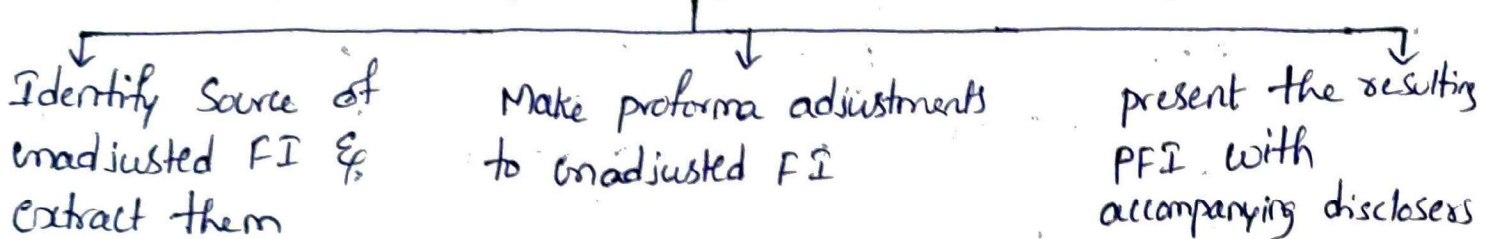 Identify Source of
unadjusted FI &
extract them
Make proforma adjustments
to unadjusted FI
present the resulting
PFI with
accompanying disclosers